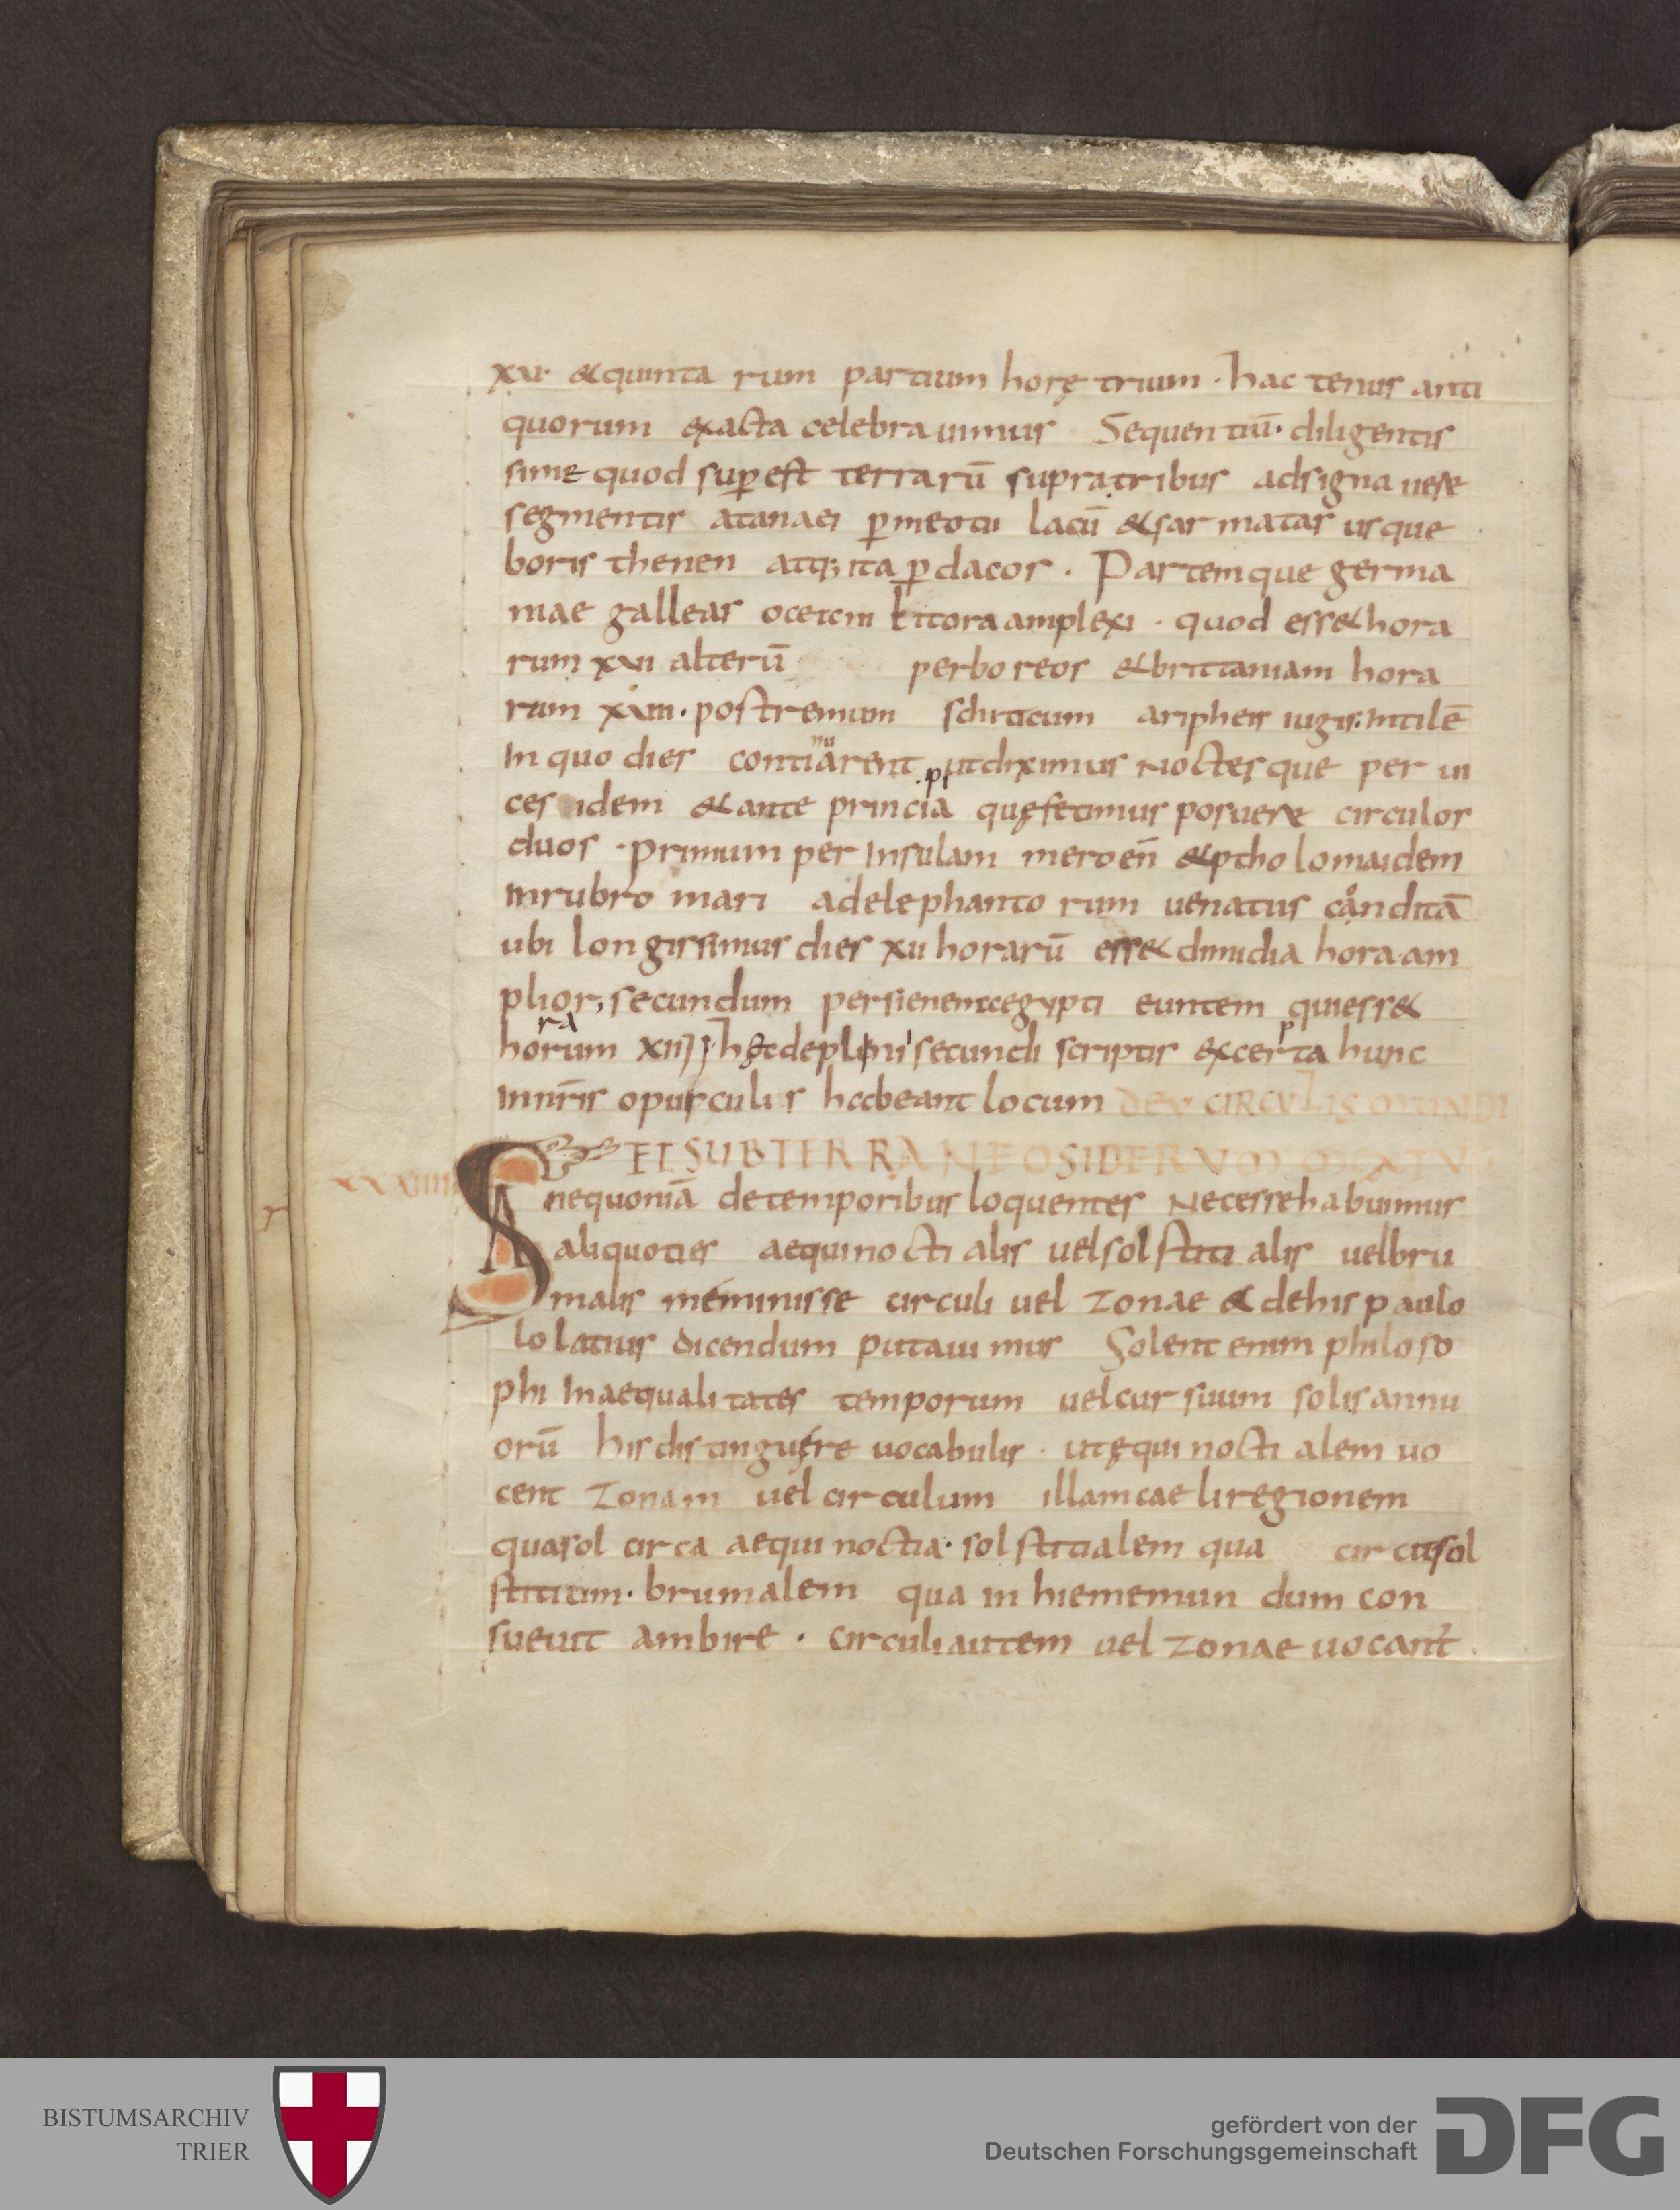 xvi &quinta rum partium horę trium · hac tenus anti
quorum exacta celebrauimus Sequentiū· diligentis
sime quod sup̱est terrarū supra tribus adsignauere
segmentis atanaei p̱meotii lacū &sarmatas usque
boris thenen atq; ita p̱dacos · Partemque germa
niae galleas litora amplexi · quod ess&hora
rum xvi alterū perboreos &brittaniam hora
rum xvii· postremum schiticum aripheis iugis· intilē
In quo dies continuarent ut diximus noctesque per ui
ces idem &ante principia quę fecimus posuere circulos
duos · primum per Insulam meroen̄ &ptholomaidem
inrubro mari adelephanto rum uenatus conditā
ubi longissimus dies xii horarū ess& dimidia hora am
plior, secundum persienem aegypti euntem qui ess&
horarum xiii hęc de plini secundi scriptis excerpta hunc
innr̄is opusculis habeant locum DEV CIRCVLIS MUNDI
ET SUBTERRANEO SIDERVM
XXXIIII
S
nequoniā detemporibus loquentes Necesse habuimus
aliquoties aequinocti alis uel solstiti alis uel bru
malis meminisse circuli uel zonae & dehis paulo
lo latius dicendum putaui mus Solent enim philoso
phi Inaequali tates temporum uel cur suum solis annu
orū his distinguere uocabulis · ut ęqui nocti alem uo
cent zonam uel circulum illam caeli regionem
qua sol circa aequi noctia· sol stitialem qua circa sol
stitium· brumalem qua in hieme mun dum con
sueuit ambire · circuli autem uel zonae uocant̄
r
BISTUMSARCHIV
TRIER
gefördert von der
Deutschen Forschungsgemeinschaft
DFG